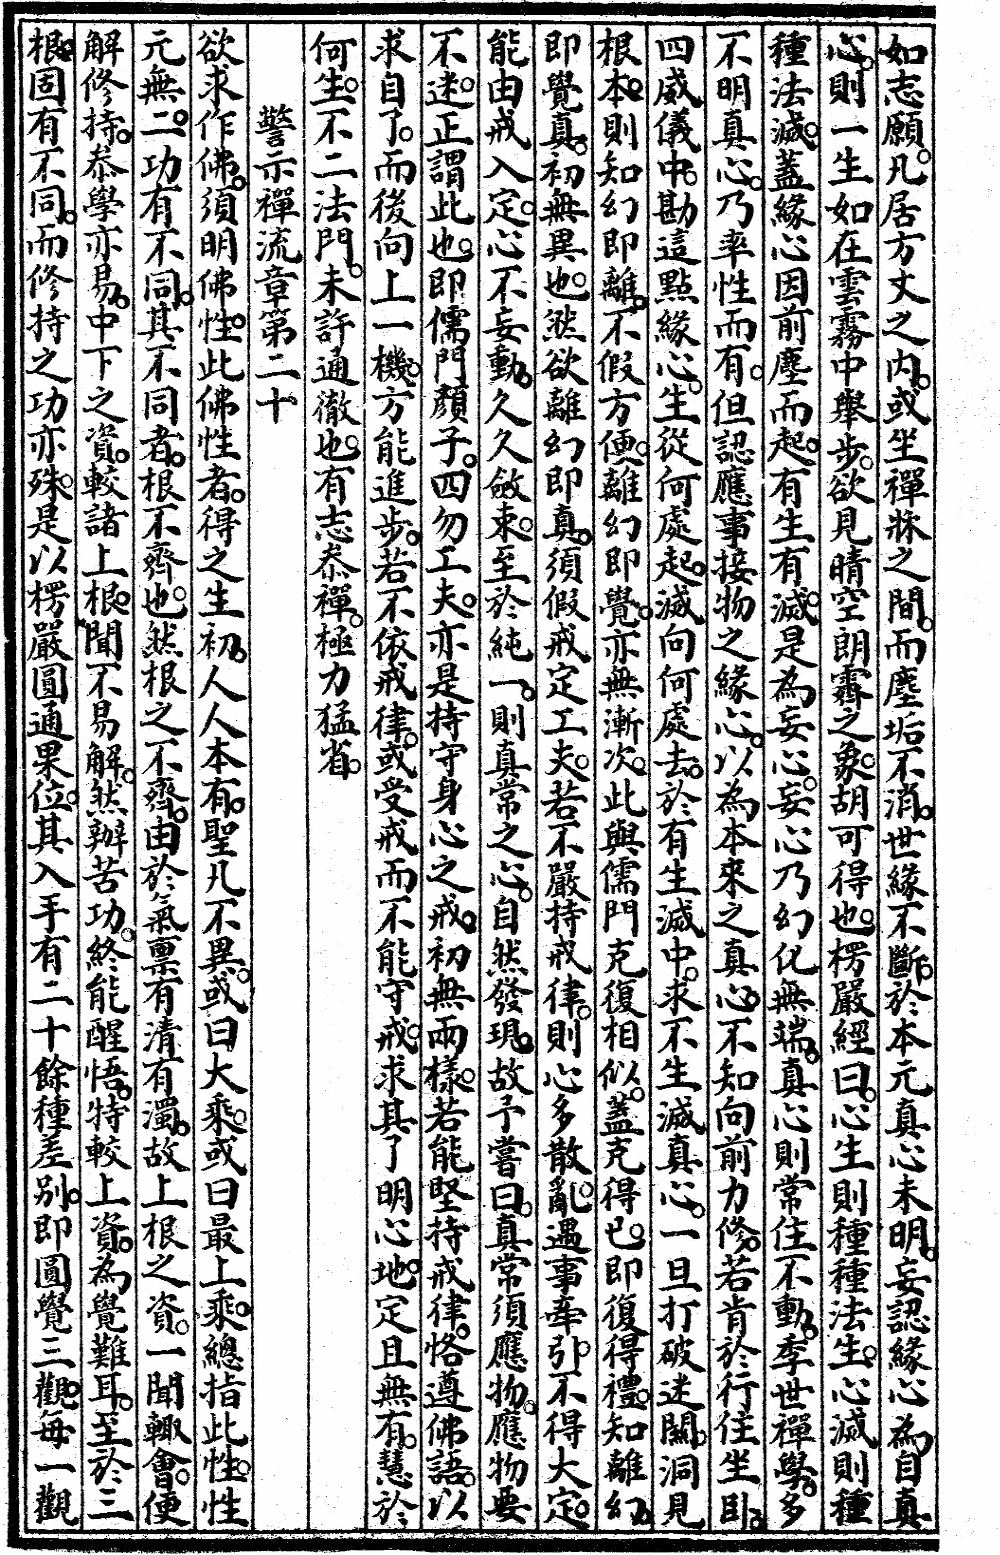 如志願。凡居方丈之内。或坐禪牀之間。而塵垢不消。世緣不斷。於本元真心未明。妄認緣心為自真
心。則一生如在雲霧中舉步。欲見晴空朗霽之象。胡可得也。楞嚴經曰。心生則種種法生。心滅則種
種法滅。蓋緣心因前塵而起。有生有滅。是為妄心。妄心乃幻化無端。真心則常住不動。季世禪學。多
不明真心。乃率性而有。但認應事接物之緣心。以為本來之真心。不知向前力修。若肯於行住坐臥。
四威儀中。勘這點緣心。生從何處起。滅向何處去。於有生滅中。求不生滅真心。一旦打破迷關。洞見
根本。則知幻即離。不假方便。離幻即覺。亦無漸次。此與儒門克復相似。蓋克得已。即復得禮。知離幻。
即覺真。初無異也。然欲離幻即真。須假戒定工夫。若不嚴持戒律。則心多散亂。遇事牽引。不得大定。
能由戒入定。心不妄動。久久斂束。至於純一。則真常之心。自然發現。故予嘗曰。真常須應物。應物要
不迷。正謂此也。即儒門顏子。四勿工夫。亦是持守身心之戒。初無兩樣。若能堅持戒律。恪遵佛語。以
求自了。而後向上一機。方能進步。若不依戒律。或受戒而不能守戒。求其了明心地。定且無有。慧於
何生。不二法門。未許通徹也。有志叅禪。極力猛省。
警示禪流章第二十
欲求作佛。須明佛性。此佛性者。得之生初。人人本有。聖凡不異。或曰大乘。或曰最上乘。總指此性。性
元無二。功有不同。其不同者。根不齊也。然根之不齊。由於氣禀有清有濁。故上根之資。一聞輙會。便
解修持。叅學亦易。中下之資。較諸上根。聞不易解。然辦苦功。終能醒悟。特較上資。為覺難耳。至於三
根。固有不同。而修持之功亦殊。是以楞嚴圓通果位。其入手有二十餘種差别。即圓覺三觀。每一觀